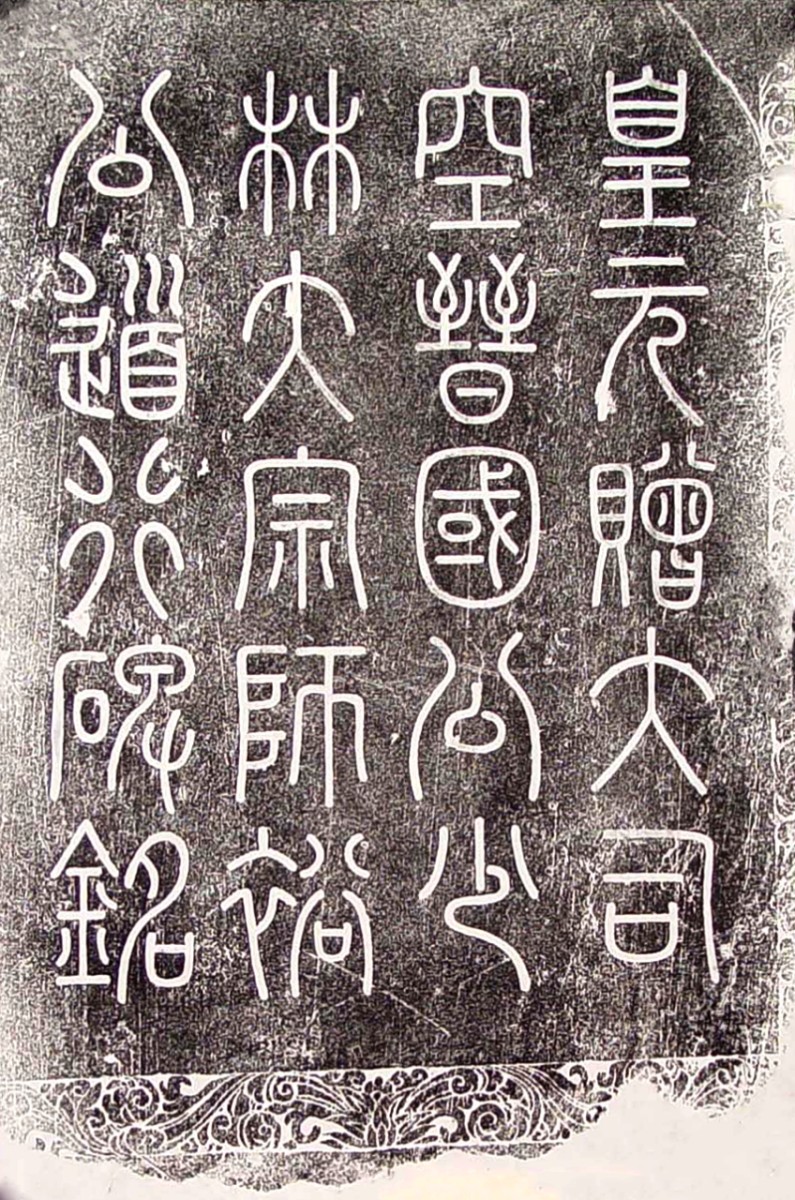 皇元贈大司
空晉國公少
林大宗師裕
公道行碑銘